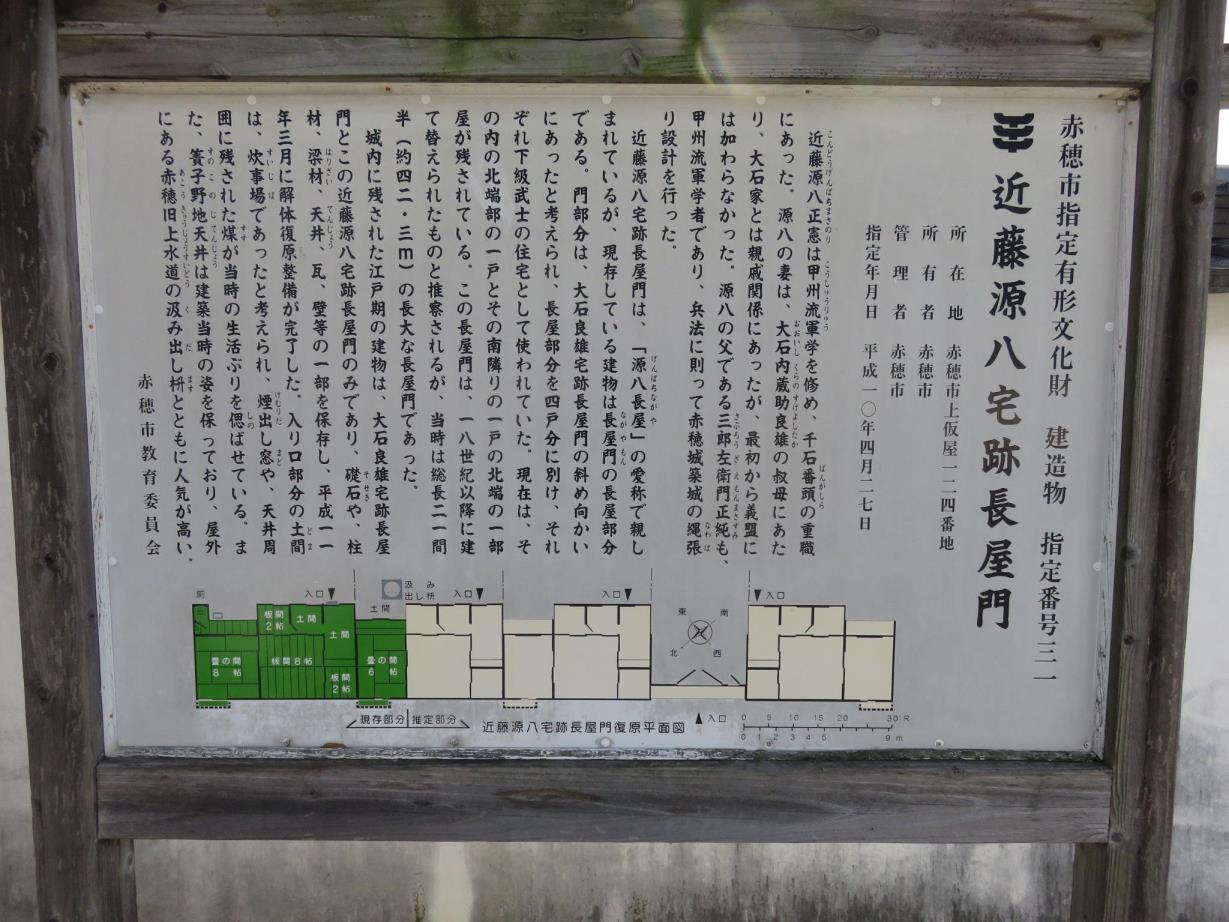 赤穂市指定有形文化財　建造物　指定番号三一
近藤源八宅跡長屋門
所在地　赤穂市上仮屋一二四番地
所有者　赤穂市
管理者　赤穂市
指定年月日　平成一〇年四月二七日
近藤源八正憲は甲州流軍学を修め、千石番頭の重職
にあった。源八の妻は、大石内蔵助良雄の叔母にあた
り、大石家とは親戚関係にあったが、最初から義盟に
は加わらなかった。源八の父である三郎左衛門正純も、
甲州流軍学者であり、兵法に則って赤穂城築城の縄張
り設計を行った。
近藤源八宅跡長屋門は、「源八長屋」の愛称で親し
まれているが、現存している建物は長屋門の長屋部分
である。門部分は、大石良雄宅跡長屋門の斜め向かい
にあったと考えられ、長屋部分を四戸分に別け、それ
ぞれ下級武士の住宅として使われていた。現在は、そ
の内の北端部の一戸とその南隣りの一戸の北端の一部
屋が残されている。この長屋門は、一八世紀以降に建
て替えられたものと推察されるが、当時は総長二一間
半（約四二・三ｍ）の長大な長屋門であった。
城内に残された江戸期の建物は、大石良雄宅跡長屋
門とこの近藤源八宅跡長屋門のみであり、礎石や、柱
材、梁材、天井、瓦、壁等の一部を保存し、平成一一
年三月に解体復原整備が完了した。入り口部分の土間
は、炊事場であったと考えられ、煙出し窓や、天井周
囲に残された煤が当時の生活ぶりを偲ばせている。ま
た、簀子野地天井は建築当時の姿を保っており、屋外
にある赤穂旧上水道の汲み出し枡とともに人気が高い.
赤穂市教育委員会
厠
入口
汲み
出し枡
入口
入口
入口
土間
板間
2帖
土間
土間
畳の間
8帖
板間8帖
板間
2帖
畳の間
6帖
東
南
北
西
現存部分
推定部分
近藤源八宅跡長屋門復原平面図
入口
0 5 10 15 20 30尺
0 1 2 3 4 5 9m